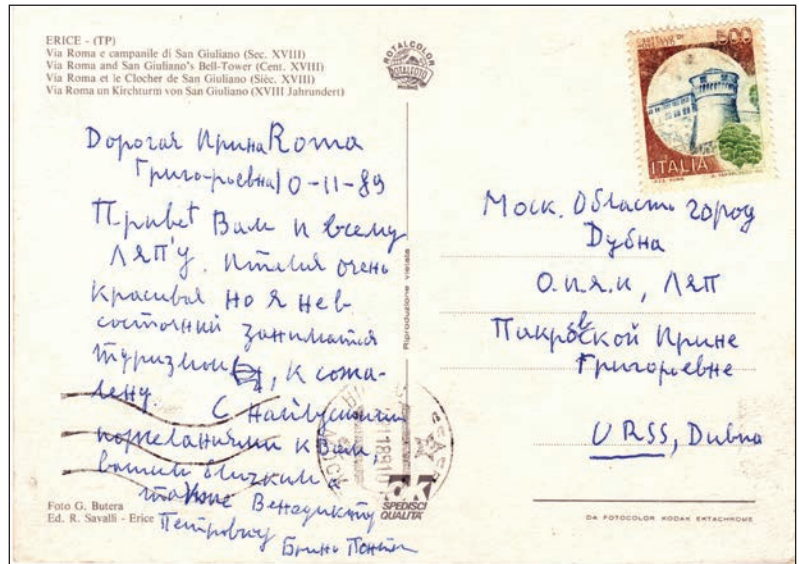 ERICE - (TP)
Via Roma e campanile di San Giuliano (Sec. XVIII)
Via Roma and San Giuliano's Bell-Tower (Cent. XVIII)
Via Roma et le Clocher de San Giuliano (Sièc. XVIII)
Via Roma un Kirchturm von San Giuliano (XVIII Jahrundert)
ROTALCOLOR
ROTALFOTO
MILANO
500
ITALIA
Дорогая Ирина Roma
Григорьевна 10-11-89
Привет Вам и всему
ЛЯП'у. Италия очень
красивая но я нев-
состоянии заниматся
туризмом, к сожа-
лену.
С наилучшими
пожеланиями к Вам,
вашим близким
также Венедикту
Петровичу
Бруно Понте
Foto G. Butera
Ed. R. Savalli - Erice
SPEDISCI
QUALITA'
Riproduzione vietata
Моск. Область город
Дубна
О.и.я.и, ЛЯП
Пакровской Ирине
Григорьевне
URSS, Dubna
DA FOTOCOLOR KODAK EKTACHROME